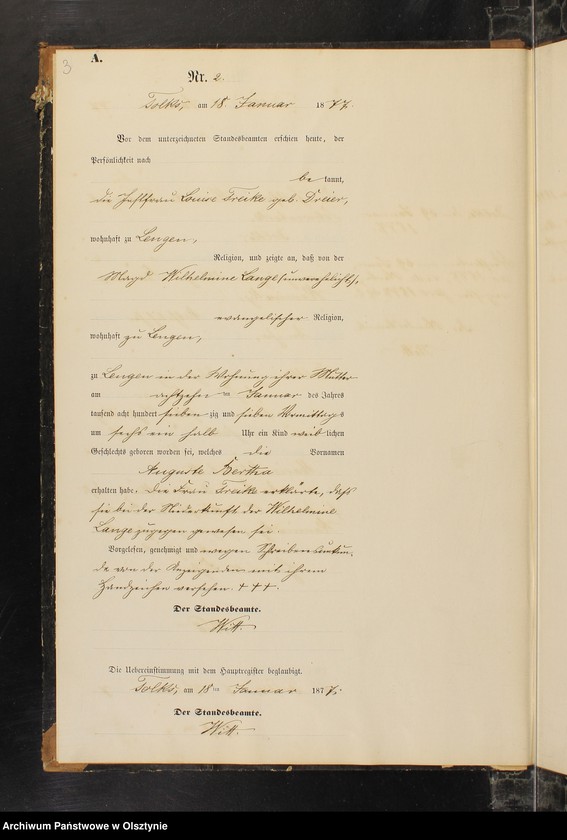 3
A.
Nr. 2.
Tolks, am 18. Januar 1877.
Vor dem unterzeichneten Standesbeamten erschien heute, der
Persönlichkeit nach
be kannt,
die Instfrau Louise Freike geb. Dreier,
wohnhaft zu Lengen,
Religion, und zeigte an, daß von der
Magd Wilhelmine Lange (unverehelicht),
evangelischer Religion,
wohnhaft zu Lengen,
zu Lengen in der Wohnung ihrer Mutter
am achtzehn ten Januar des Jahres
tausend acht hundert sieben zig und sieben Vormittags
um sechs ein halb Uhr ein Kind weib lichen
Geschlechts geboren worden sei, welches die Vornamen
Auguste Bertha
erhalten habe. Die Frau Freike erklärte, daß
sie bei der Niederkunft der Wilhelmine
Lange zugegen gewesen sei.
Vorgelesen, genehmigt und wegen Schreibensunkun-
de von der Anzeigenden mit ihrem
Handzeichen versehen. + + +.
Der Standesbeamte.
Witt.
Die Uebereinstimmung mit dem Hauptregister beglaubigt.
Tolks, am 18ten Januar 1877.
Der Standesbeamte.
Witt.
Archiwum Państwowe w Olsztynie